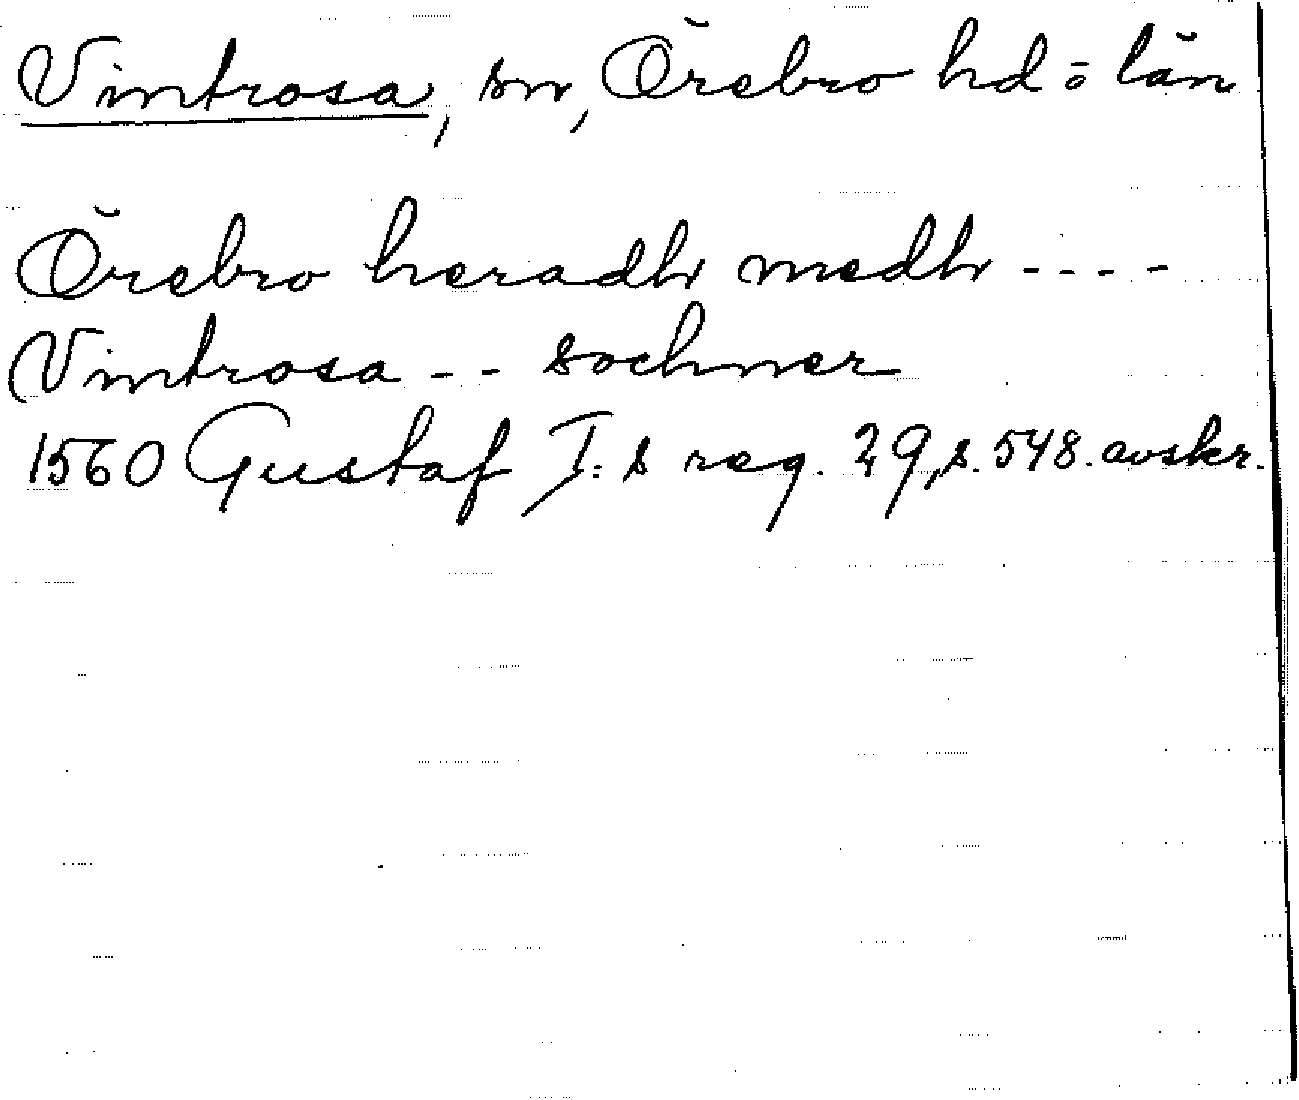 Vintrosa, sn, Örebro hd o län
Örebro heradh medh - - - -
Vintrosa - - sochner
1560 Gustaf I:s reg. 29, s. 548. avskr.